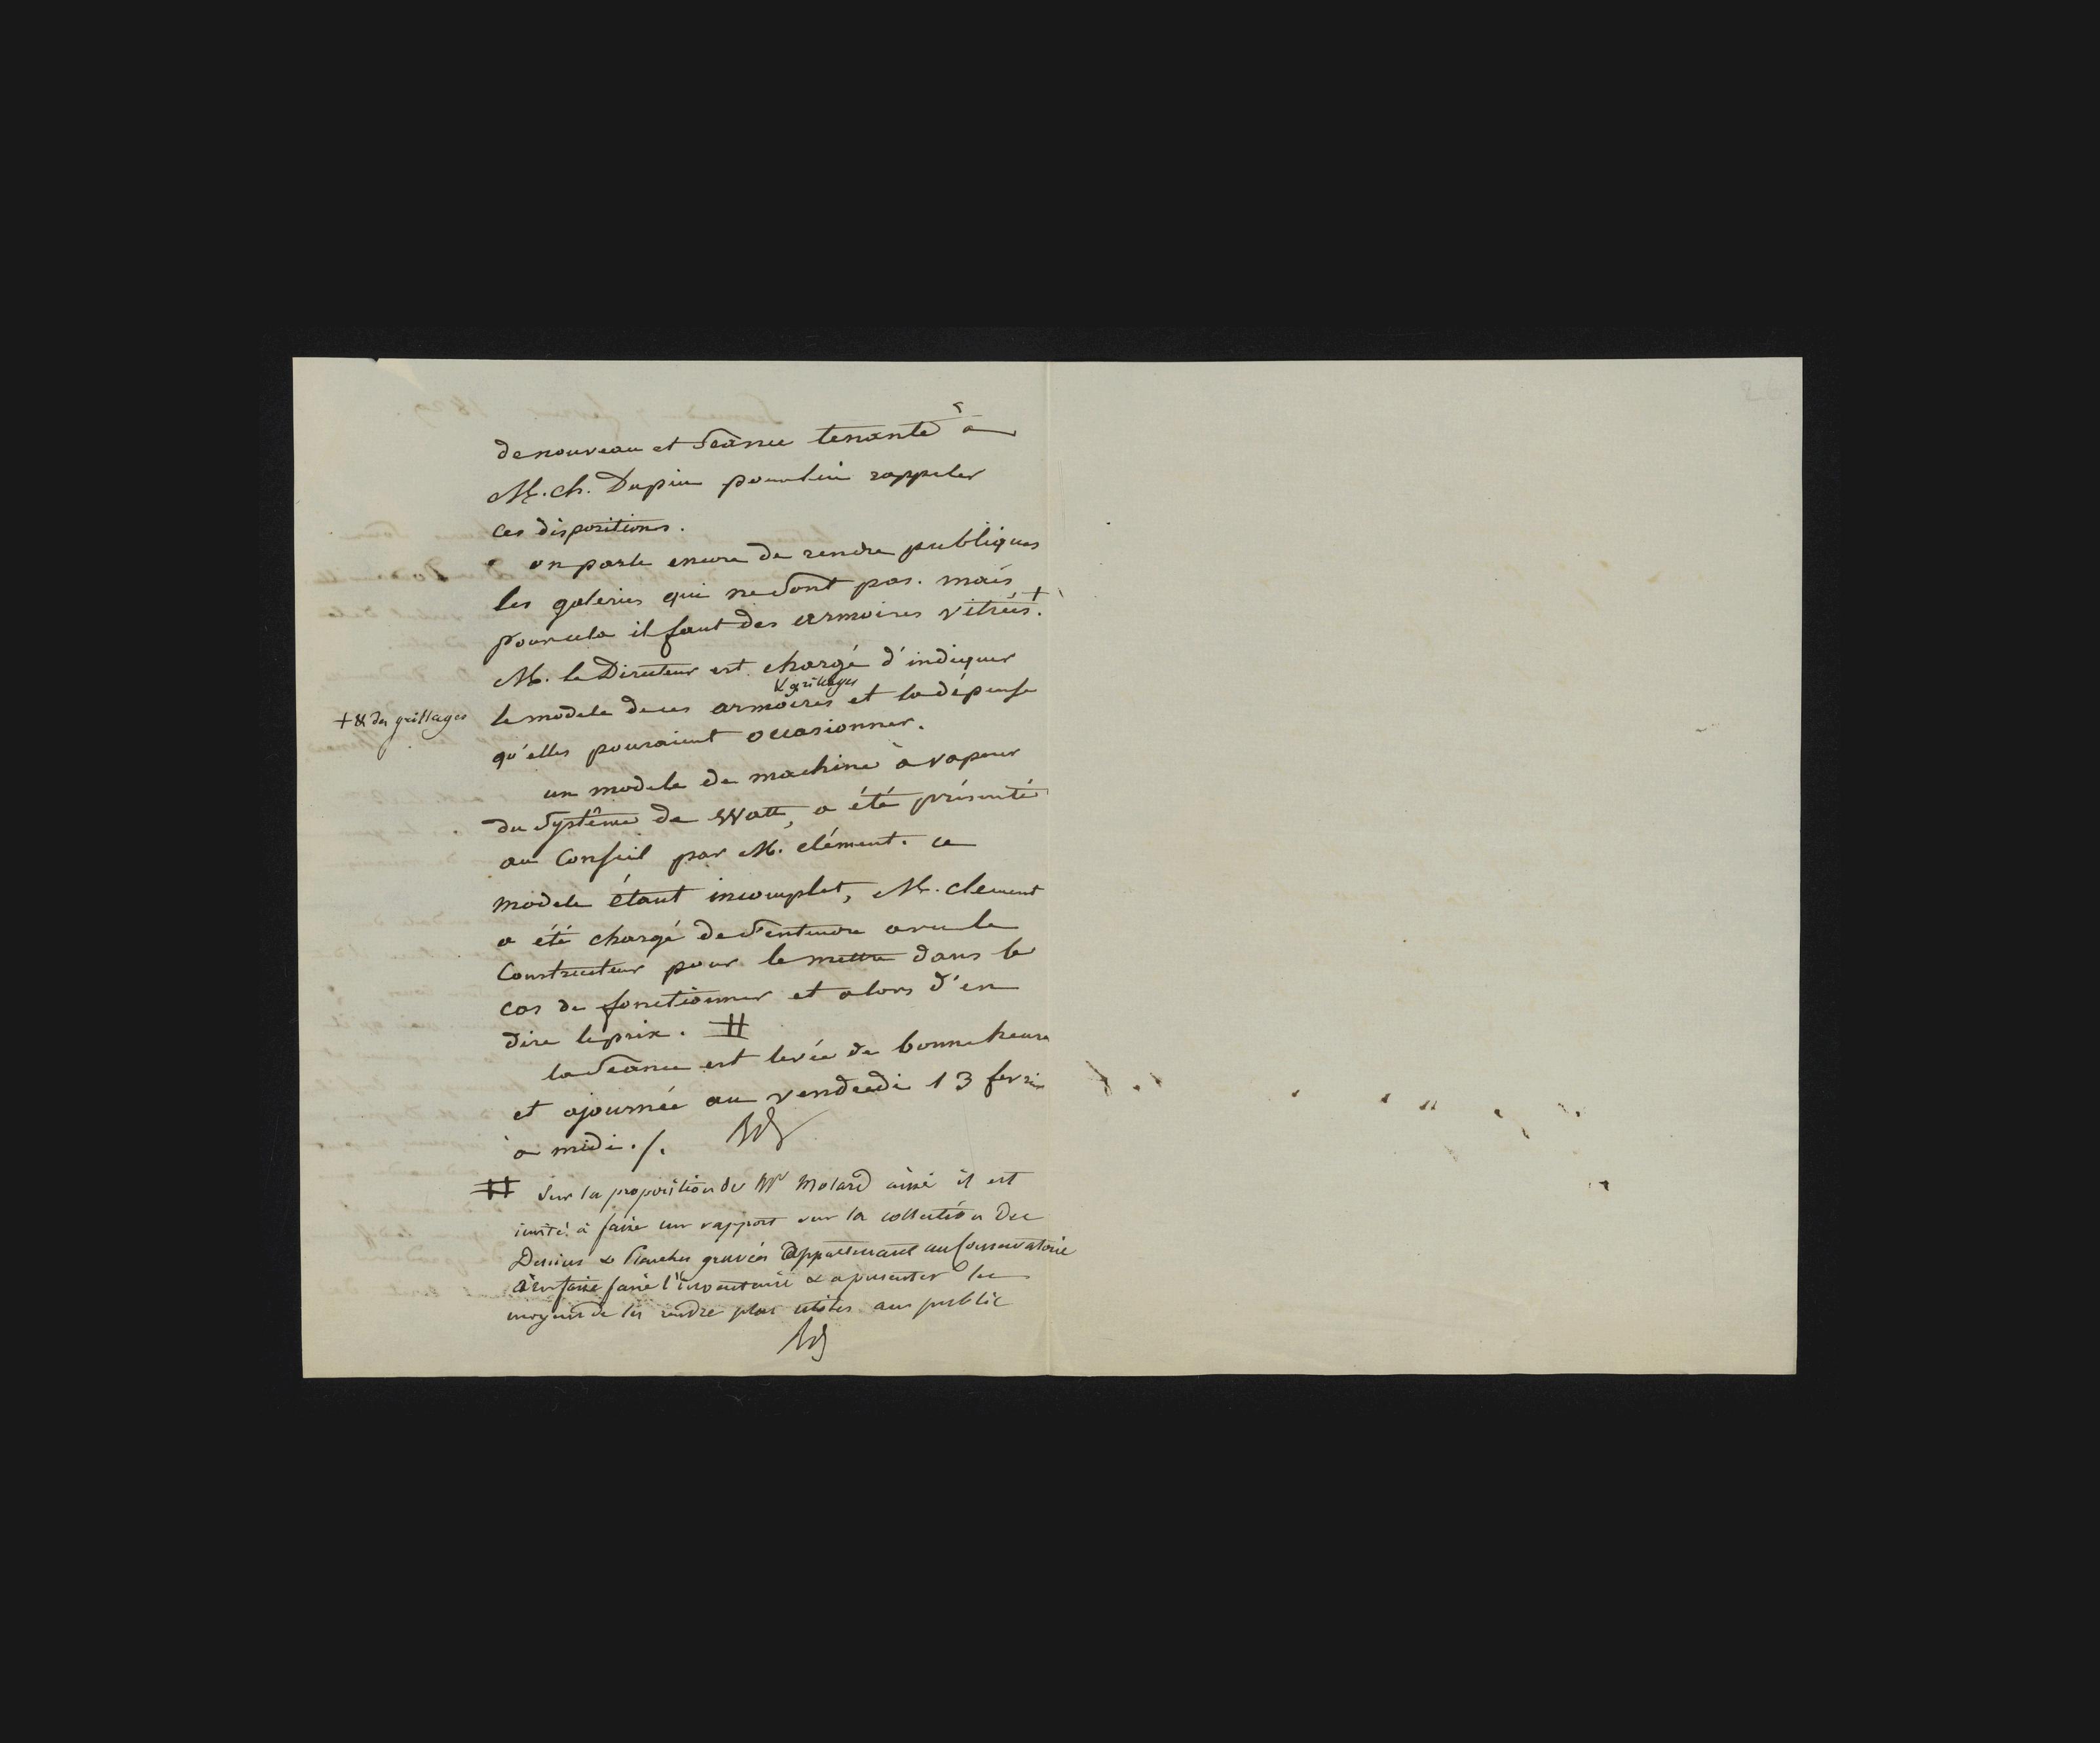 de nouveau et séance tenante à
M. Ch. Dupin pour lui rappeler
ces dispositions.
on parle encore de rendre publiques
les galeries qui ne sont pas. mais
pour cela il faut des armoires vitrées. +
M. le Directeur est chargé d'indiquer
& grillages
+ & des grillages
le modele de ces armoires et la dépense
qu'elles pouraient occasionner.
un modele de machine à vapeur
du systême de Watt, a été présenté
au Conseil par M. clément. ce
modele étant incomplet, M. clement
a été chargé de s'entendre avec le
Constructeur pour le mettre dans le
cas de fonctionner et alors d'en
dire le prix. #
la séance est levée de bonne heure
et ajournée au vendredi 13 fevrier
à midi ./.
# Sur la proposition de Mr Molard ainé il est
invité à faire un rapport sur la collection des
Dessins & Planches gravées appartenant au Conservatoire
à en faire faire l'inventaire & a presenter les
moyens de les rendre plus utiles au public